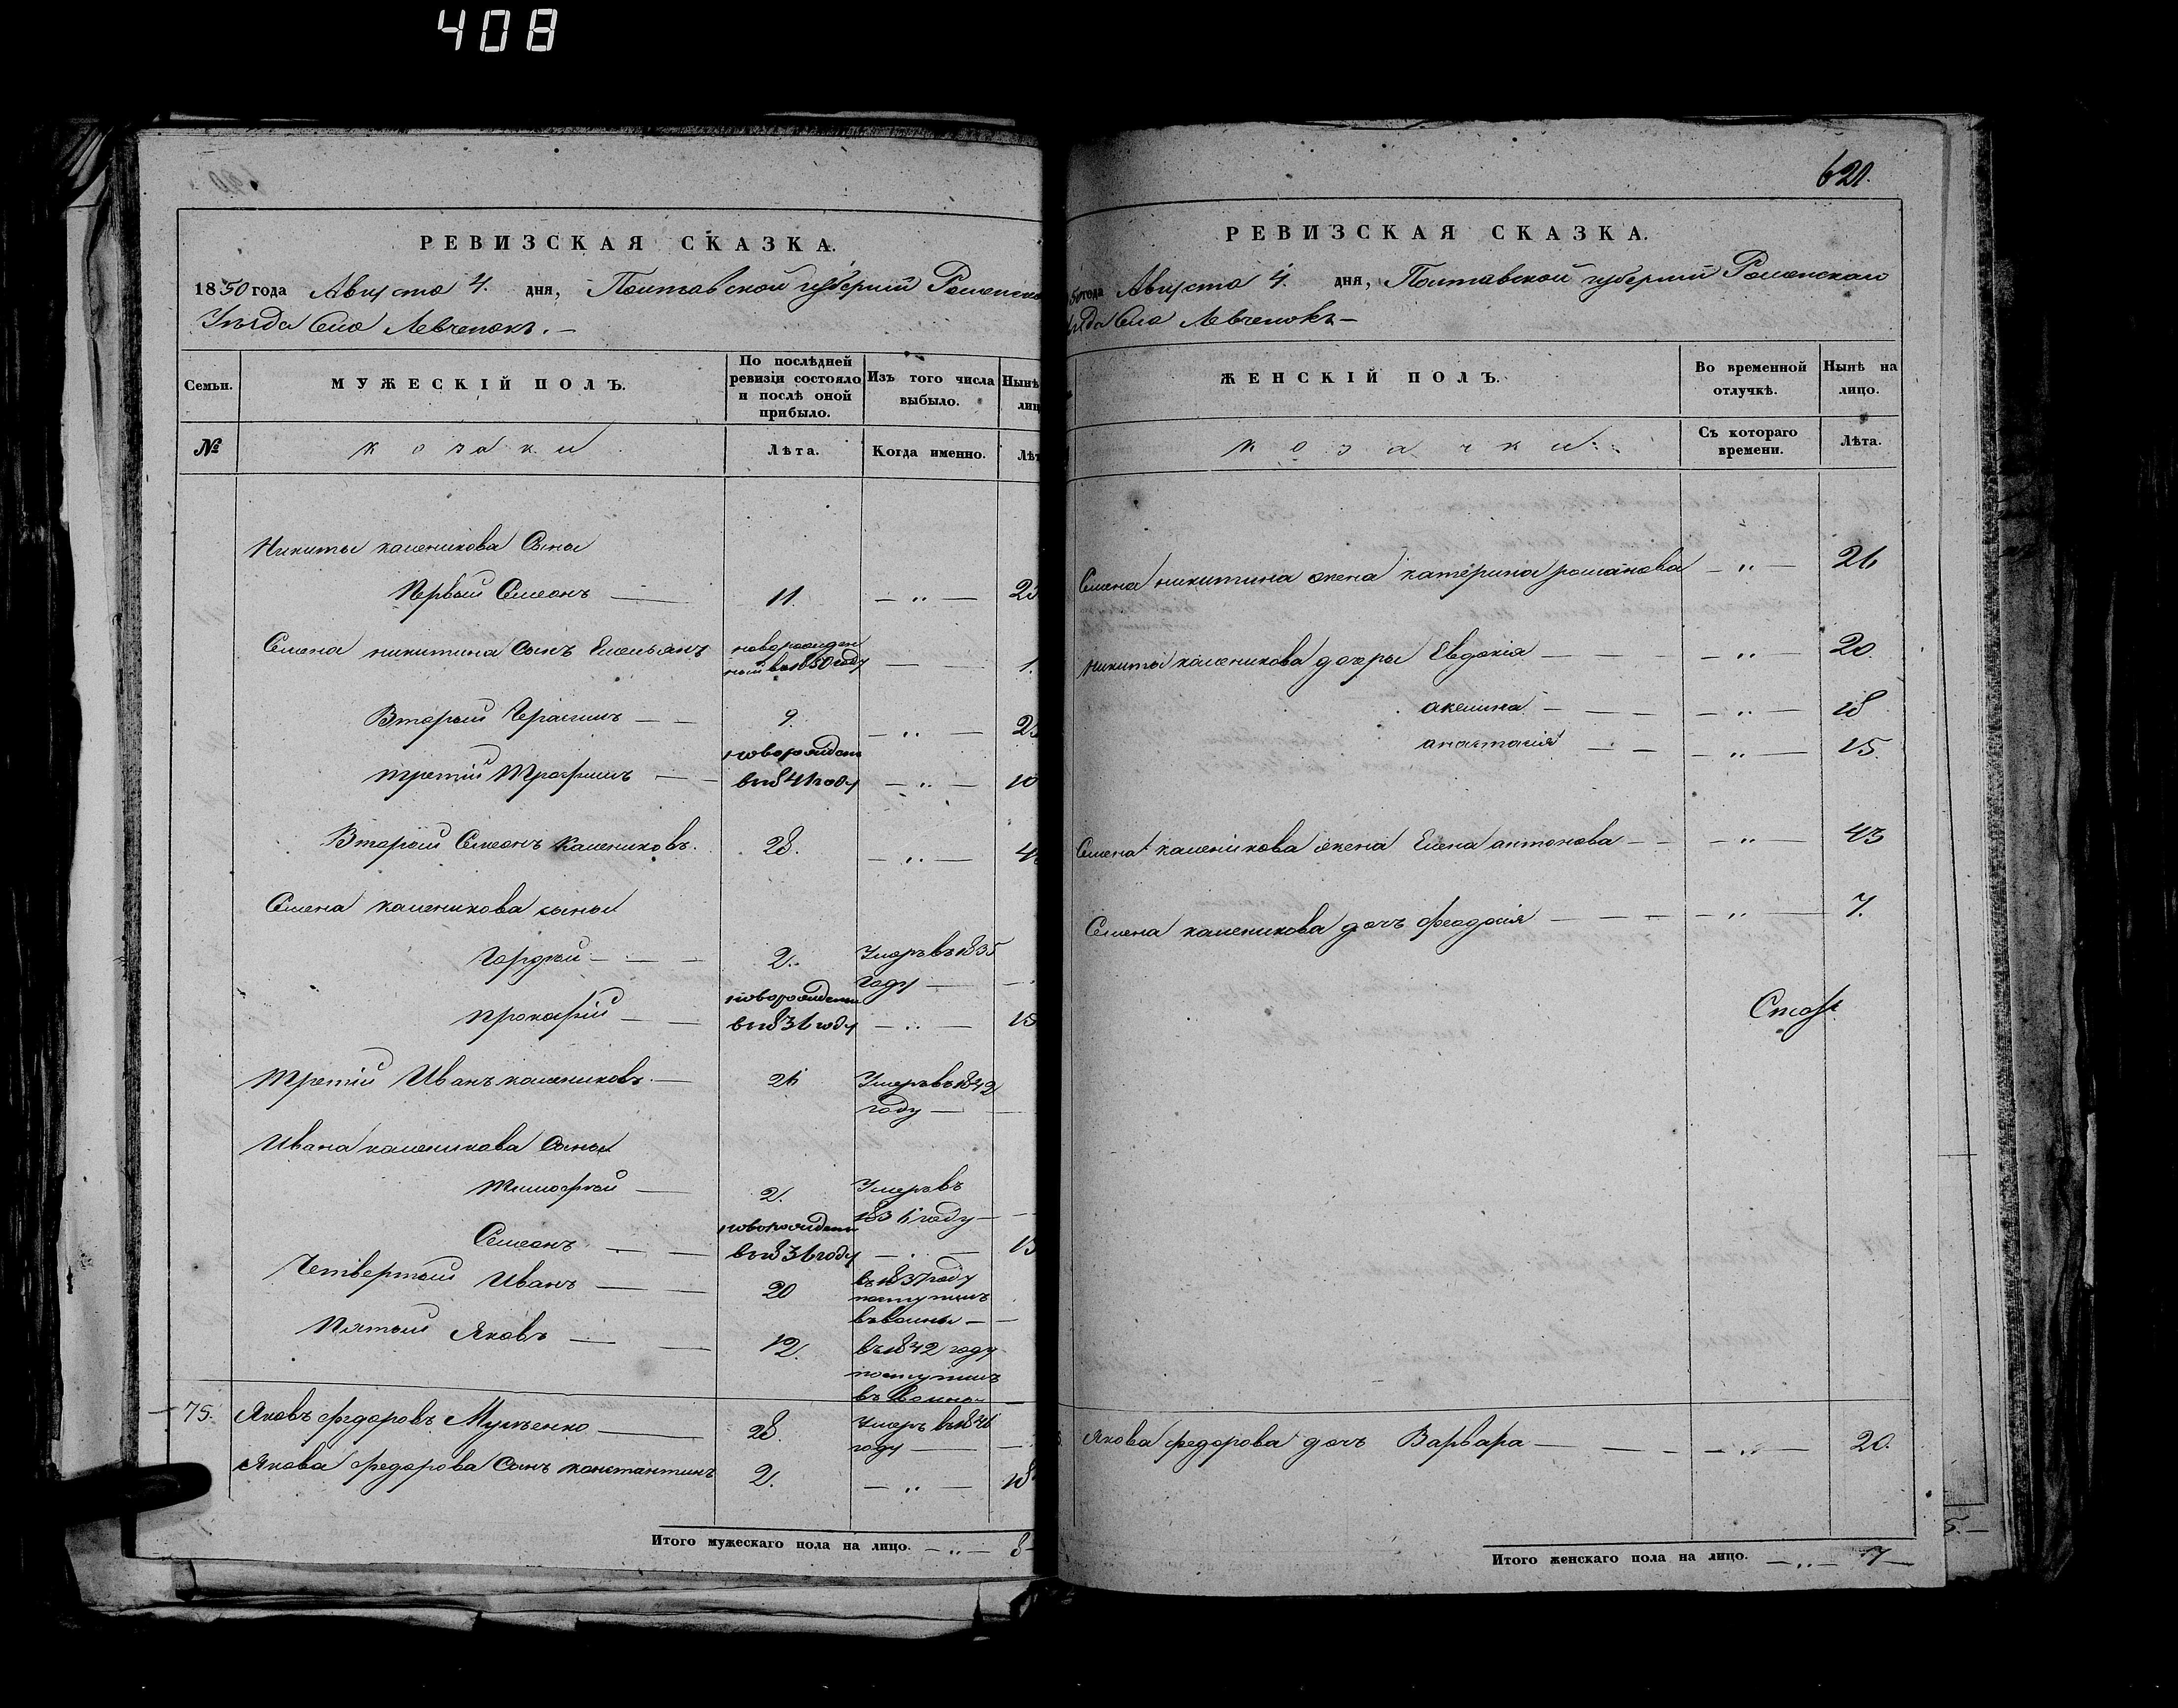 408
РЕВИЗСКАЯ СКАЗКА.
1850 года Августа 4. дня, Полтавской губерній Роменско
Уѣзда Села Левченокъ. —
Семьи.
МУЖЕСКІЙ ПОЛЪ.
По послѣдней ревизіи состояло и послѣ оной прибыло.
Изъ того числа выбыло.
Нынѣ
лиц
№
козаки
Лѣта.
Когда именно.
Лѣт
Никиты каленикова Сыны
Первый Семенъ — 11. — „ —
Семена никитина Сынъ Емельянъ новорожден ный въ 1850 году — — 1.
Вторый Герасимъ — — 9. — „ —
третій Трофимъ — — новорожден въ 1841 году — „ — 10
Вторый Семенъ Калениковъ. 28. — „ —
Семена каленикова сыны
Гордѣй — — — 2. Умеръ въ 1835 году —
Прокофій — — новорожден въ 1836 году — „ — 15
Третій Иванъ калениковъ. — 26 Умеръ въ 1842 году —
Ивана каленикова Сыны
Тимофѣй — 2. Умеръ въ 1836 году —
Семенъ — — новорожден въ 1836 году — „ — 15
Четвертый Иванъ — 20 въ 1837 году поступилъ въ воины —
Пятый Яковъ — — 12. въ 1842 году поступилъ въ воины
75. Яковъ федоровъ — 28. Умеръ въ 1846 году —
Якова федорова Сынъ константинъ 2. — „ — 18
Итого мужескаго пола на лицо. — „ — 8 —
621.
РЕВИЗСКАЯ СКАЗКА.
50 года Августа 4. дня, Полтавской губерній Роменскаго
ѣзда Села Левченокъ —
ЖЕНСКІЙ ПОЛЪ.
Во временной отлучкѣ.
Нынѣ на лицо.
козачки.
Съ котораго времени.
Лѣта.
Семена никитина жена катерина романова — „ — 26
никиты каленикова дочери Евдокія — — — — „ — 20.
акелина — — — — „ — 18
анастасія — — — „ — 15.
Семена каленикова жена Елена антонова — — — „ — 43
Семена каленикова дочъ феодосія — — — — „ — 7.
Якова федорова дочъ Варвара — — — — „ — 20.
Итого женскаго пола на лицо. — „ — 7 —